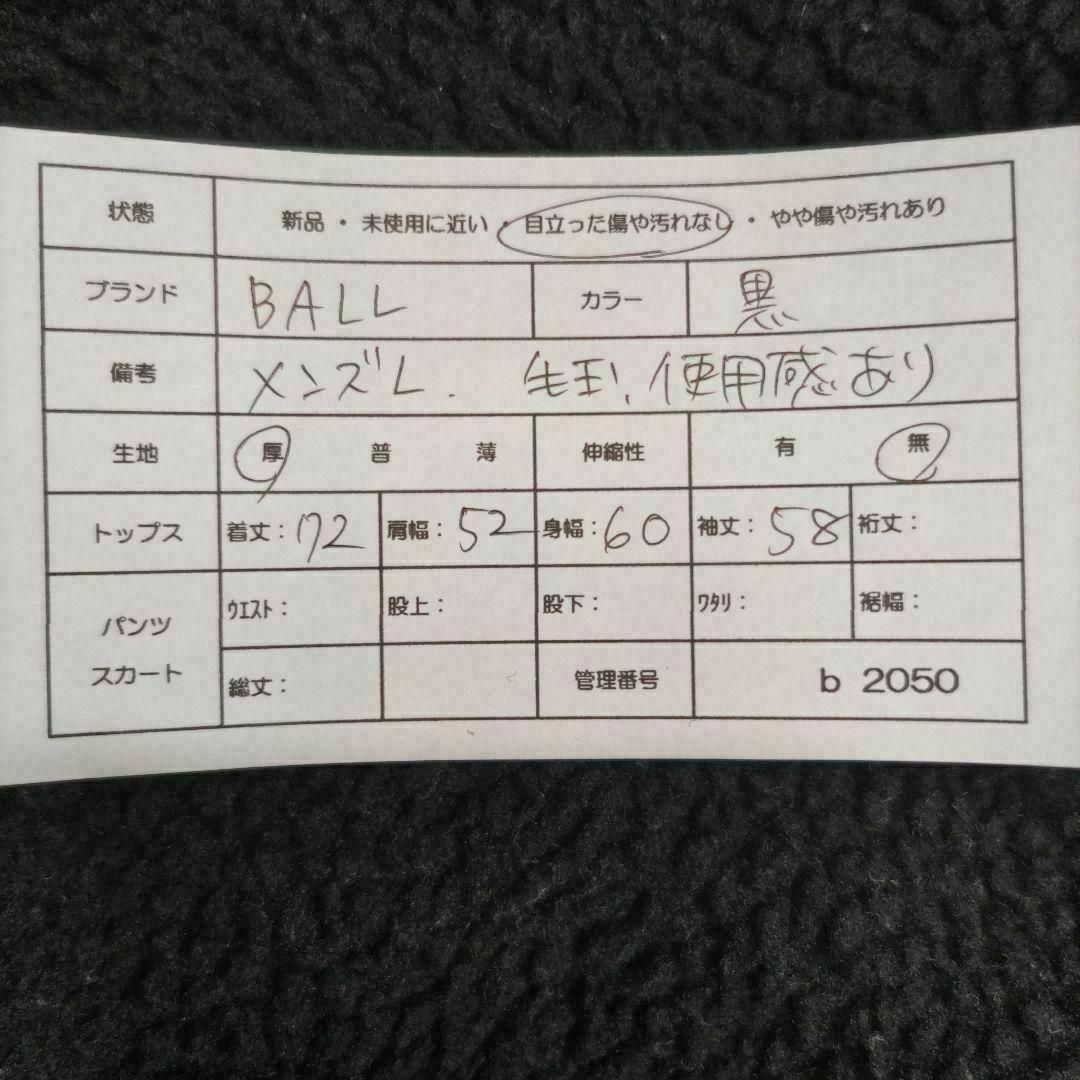 状態 新品・未使用に近い・目立った傷や汚れなし・やや傷や汚れあり
ブランド BALL カラー 黒
備考 メンズL. 毛玉、使用感あり
生地 厚 普 薄 伸縮性 有 無
トップス 着丈：72 肩幅：52 身幅：60 袖丈：58 裄丈：
パンツ スカート ウエスト： 股上： 股下： ワタリ： 裾幅：
総丈： 管理番号 b 2050